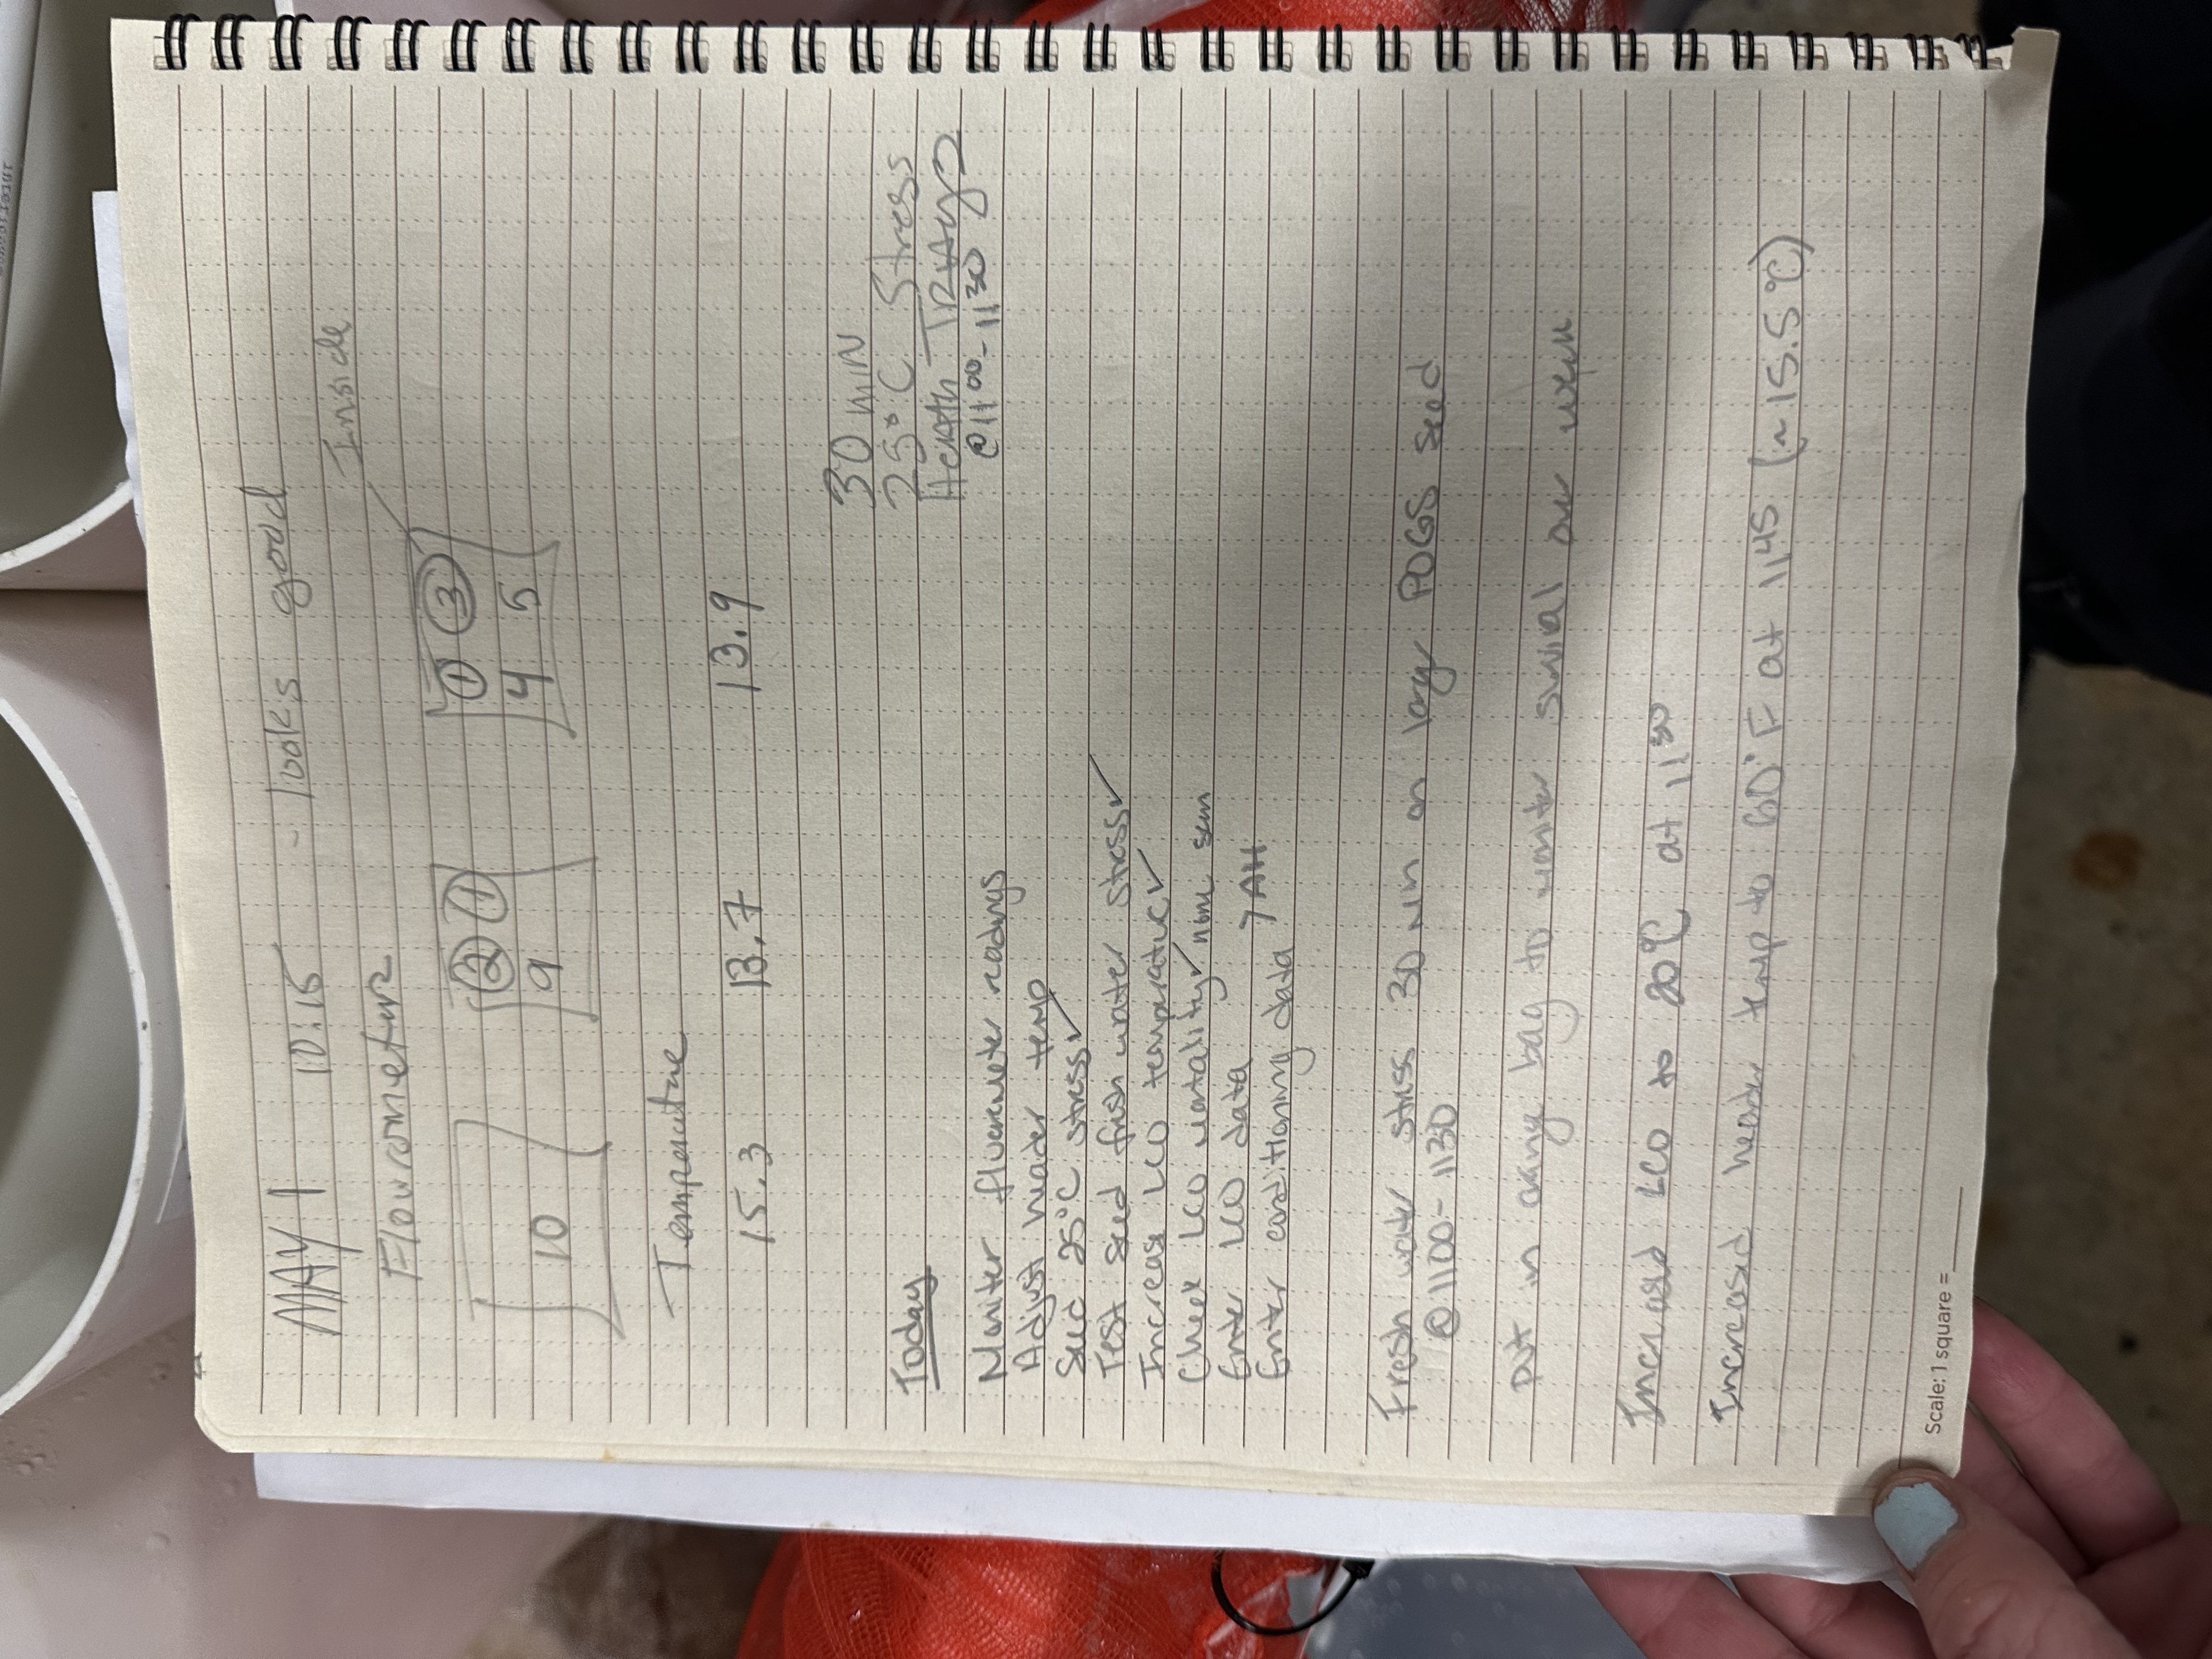 MAY 1 10:15 - looks good
Inside
Flourometers
② ① ① ③
10 9 4 5
Temperature
15.3 13.7 13.9
30 min
25°C Stress
Heath Trays
@ 11⁰⁰ - 11³⁰
Today
Monitor fluorometer readings
Adjust header temp
Seed 25°C stress ✓
Test seed fresh water stress ✓
Increase LCO temperature ✓
Check LCO mortality ✓ none seen
Enter LCO data
Enter conditioning data
AH
Fresh water stress 30 min on large POGS seed
@ 1100 - 1130
put in orange bag to monitor survival over week
Increased LCO to 20°C at 11³⁰
Increased header temp to 60°F at 11⁴⁵ (~15.5°C)
Scale: 1 square =